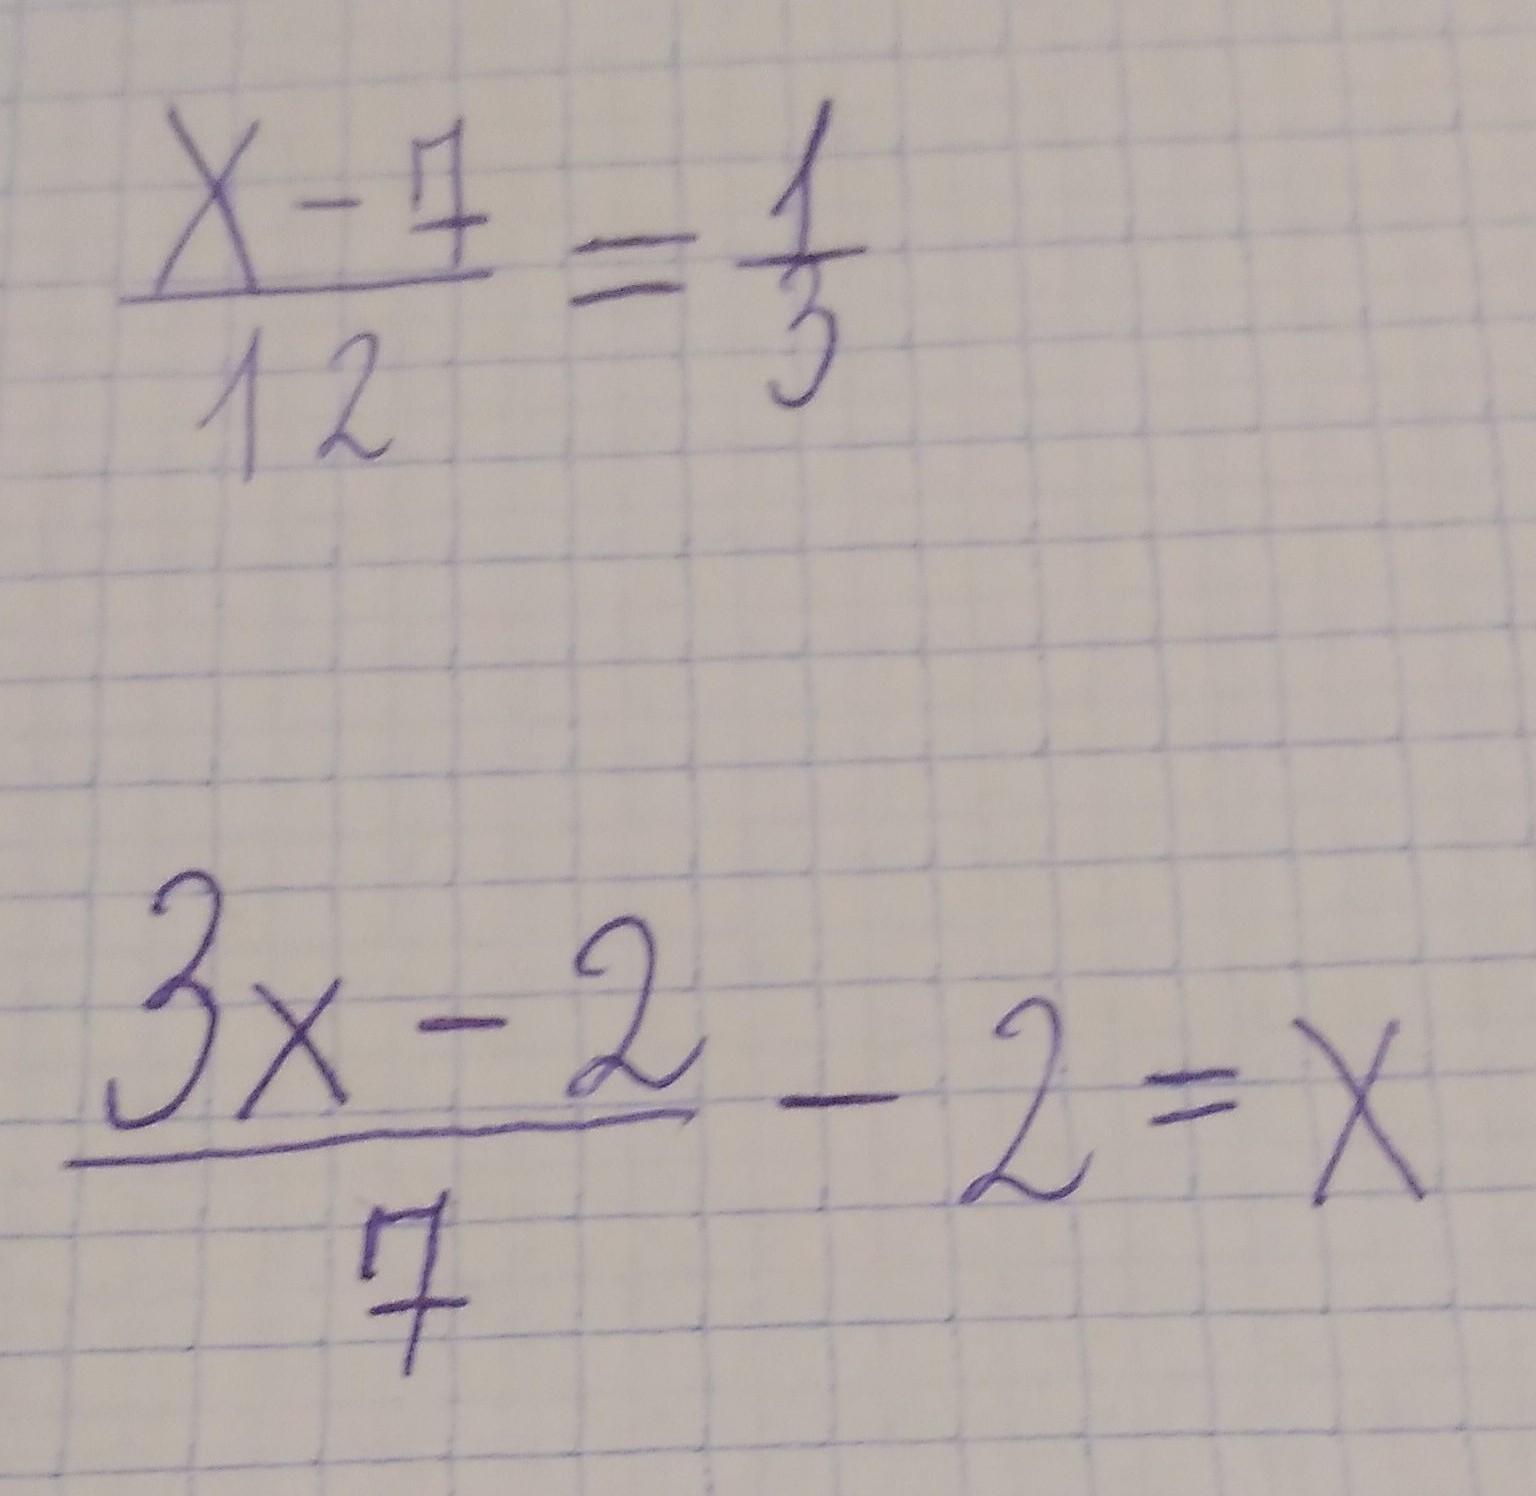 x - 7
12
= 1
3
3x - 2
7
- 2 = x